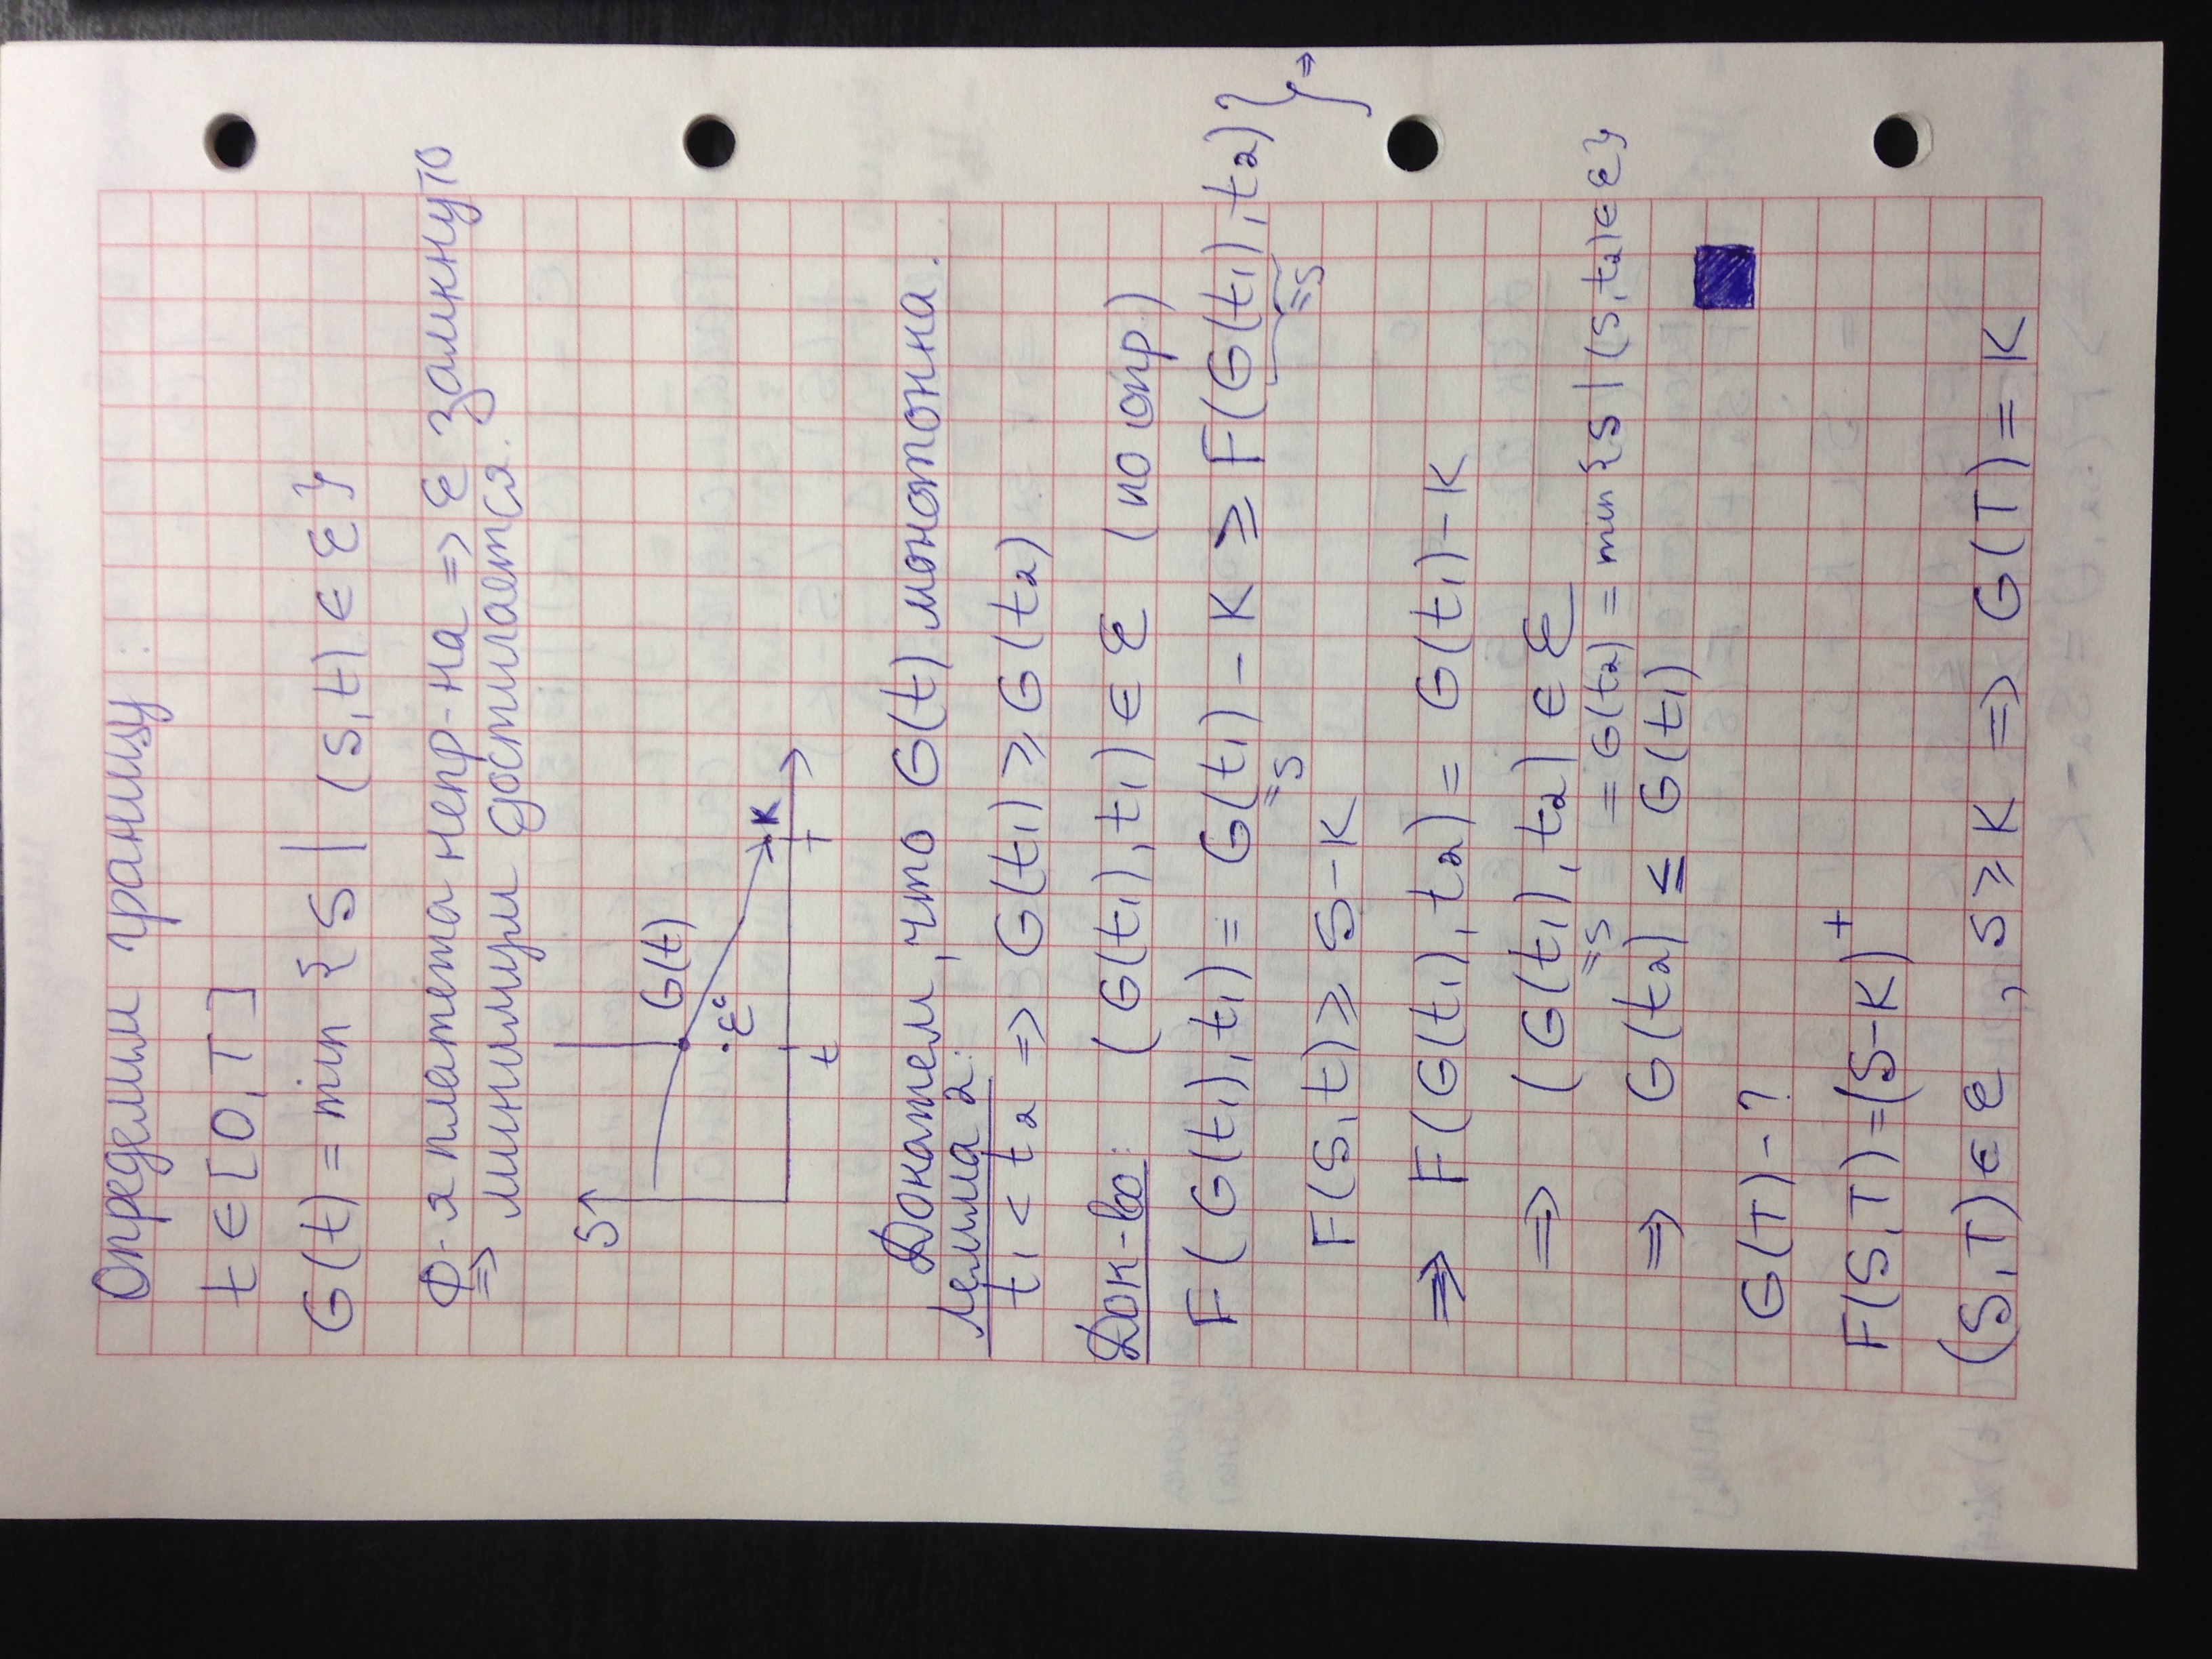 Определим границу:
t ∈ [0, T]
G(t) = min {S | (S, t) ∈ ℰ}
Ф-я платежа непр-на => ℰ замкнуто
=> минимум достигается.
S
G(t)
ℰᶜ
K
t
T
Докажем, что G(t) монотонна.
Лемма 2:
t₁ < t₂ => G(t₁) ≥ G(t₂)
Док-во: (G(t₁), t₁) ∈ ℰ (по опр)
F(G(t₁), t₁) = G(t₁) - K ≥ F(G(t₁), t₂) } =>
=S =S
F(S, t) ≥ S - K
=> F(G(t₁), t₂) = G(t₁) - K
=> (G(t₁), t₂) ∈ ℰ
=S = G(t₂) = min {S | (S, t₂) ∈ ℰ}
=> G(t₂) ≤ G(t₁)
G(T) - ?
F(S, T) = (S-K)⁺
(S, T) ∈ ℰ, S ≥ K => G(T) = K